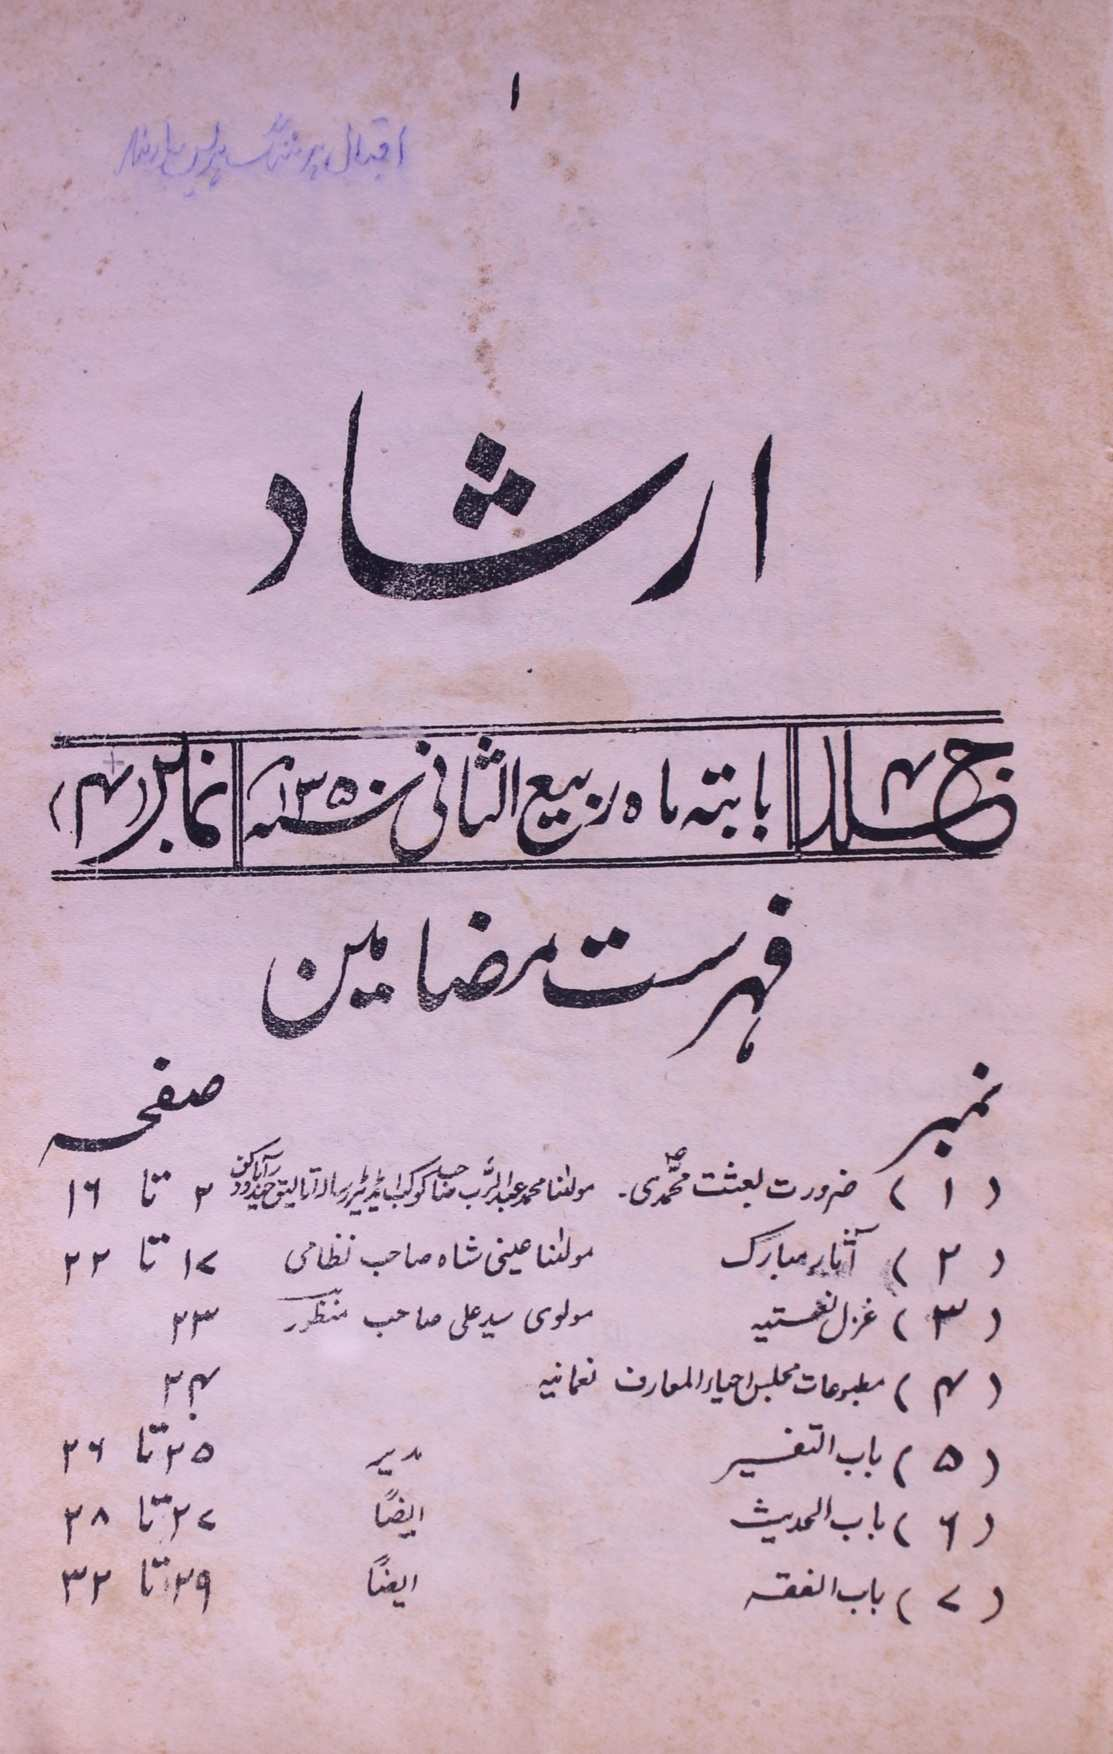 ۱
ارشاد
جلد ۴ بابتہ ماہ ربیع الثانی سنہ ۱۳۵۰ھ نمبر (۴)
فہرست مضامین
نمبر صفحہ
(۱) ضرورت بعثت محمدیؐ۔ مولٰنا محمد عبدالرب صاحب کوکب ایڈیٹر رسالہ اتالیق حیدرآباد دکن ۲ تا ۱۶
(۲) آثار مبارک مولٰنا عینی شاہ صاحب نظامی ۱۷ تا ۲۲
(۳) غزل نعتیہ مولوی سید علی صاحب منظور ۲۳
(۴) مطبوعات مجلس احیاء المعارف نعمانیہ ۲۴
(۵) باب التفسیر مدیر ۲۵ تا ۲۶
(۶) باب الحدیث ایضًا ۲۷ تا ۲۸
(۷) باب الفقہ ایضًا ۲۹ تا ۳۲